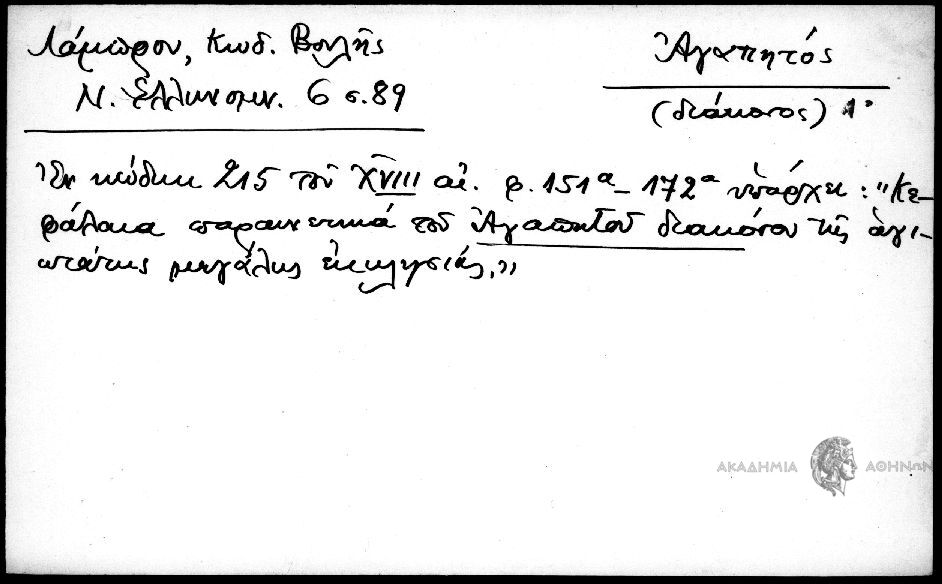 Λάμπρου, Κωδ. Βουλῆς
Ν. Ἑλληνομν. 6 σ. 89
Ἀγαπητός
(διάκονος) 1ο
Ἐν κώδικι 215 τοῦ XVIII αἰ. φ. 151α–172α ὑπάρχει: "Κε-
φάλαια παραινετικά τοῦ Ἀγαπητοῦ διακόνου τῆς ἁγι-
ωτάτης μεγάλης ἐκκλησιάς,"
ΑΚΑΔΗΜΙΑ ΑΘΗΝΩΝ